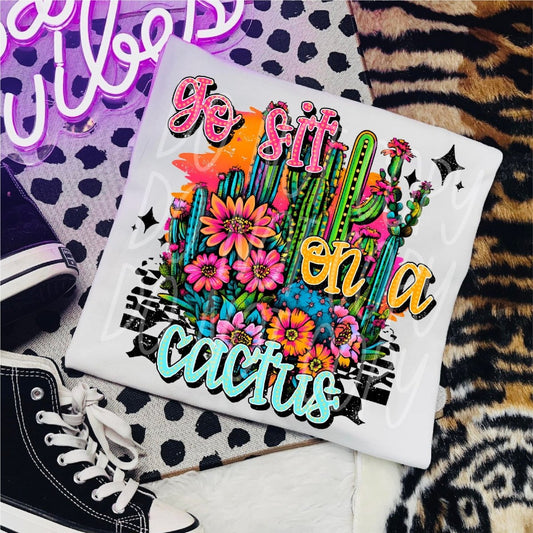 vibes
go sit
on a
cactus